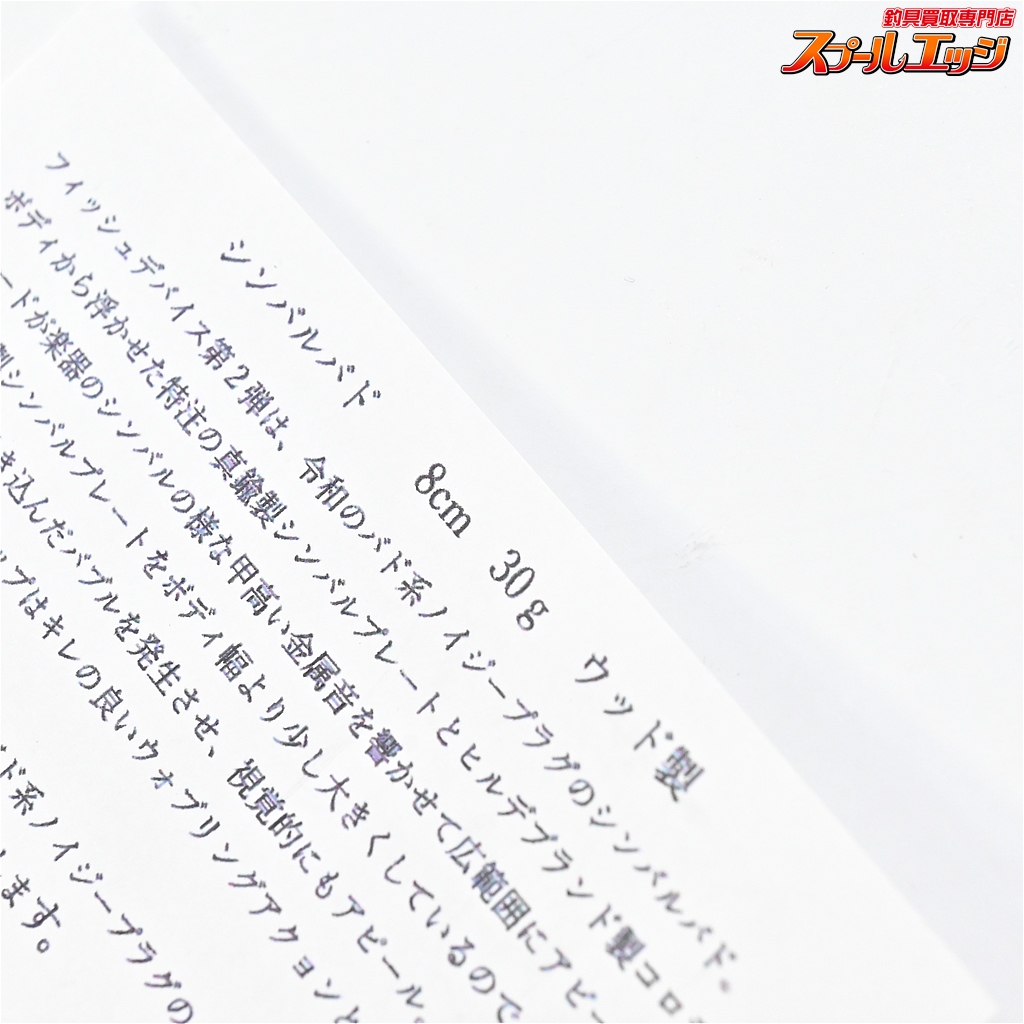 釣具買取専門店
スプールエッジ
シンバルバド 8cm 30g ウッド製
フィッシュデバイス第2弾は、令和のバド系ノイジープラグのシンバルバド。
ボディから浮かせた特注の真鍮製シンバルプレートとヒルデブランド製コロ
ードが楽器のシンバルの様な甲高い金属音を響かせて広範囲にアピー
製シンバルプレートをボディ幅より少し大きくしているので
き込んだバブルを発生させ、視覚的にもアピール。
ップはキレの良いウォブリングアクションと
ド系ノイジープラグの
します。